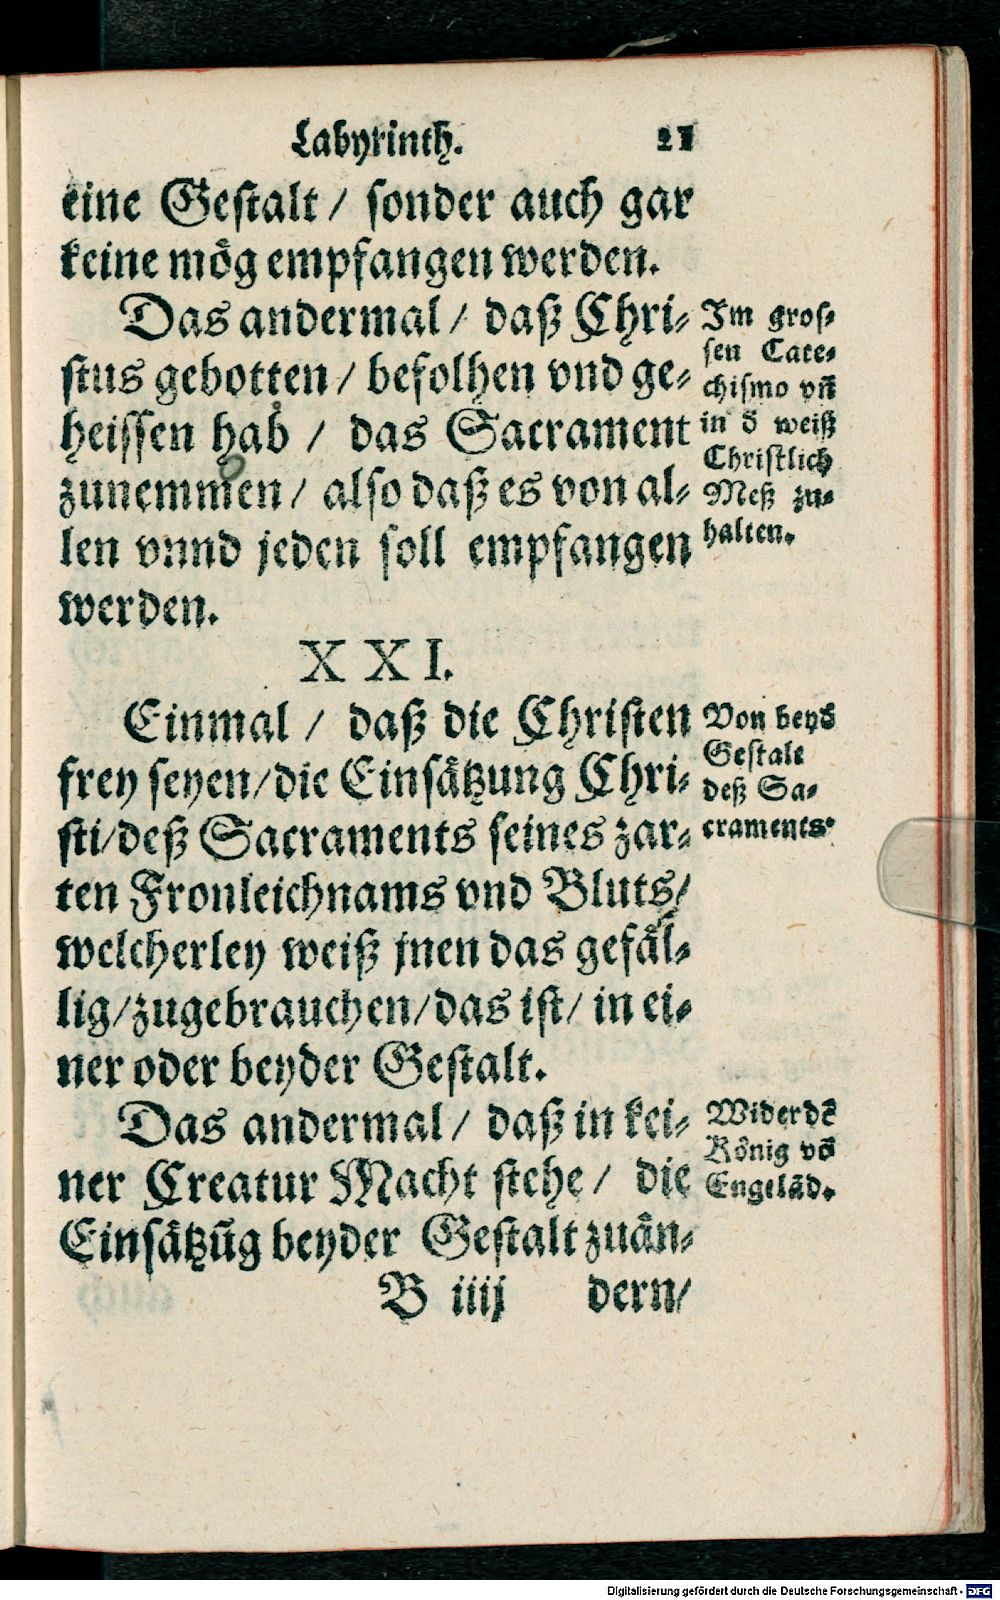 Labyrinth. 21
eine Gestalt / sonder auch gar
keine mög empfangen werden.
Das andermal / daß Chri⸗
stus gebotten / befolhen vnd ge⸗
heissen hab / das Sacrament
zunemmen / also daß es von al⸗
len vnnd jeden soll empfangen
werden.
Im gros⸗
sen Cate⸗
chismo vñ
in d̕ weiß
Christlich
Meß zu⸗
halten.
XXI.
Einmal / daß die Christen
frey seyen / die Einsätzung Chri⸗
sti / deß Sacraments seines zar⸗
ten Fronleichnams vnd Bluts /
welcherley weiß jnen das gefäl⸗
lig / zugebrauchen / das ist / in ei⸗
ner oder beyder Gestalt.
Von beyd̕
Gestalt
deß Sa⸗
craments.
Das andermal / daß in kei⸗
ner Creatur Macht stehe / die
Einsätzũg beyder Gestalt zuän⸗
Wider dẽ
König võ
Engelãd.
B iiij dern /
Digitalisierung gefördert durch die Deutsche Forschungsgemeinschaft - DFG